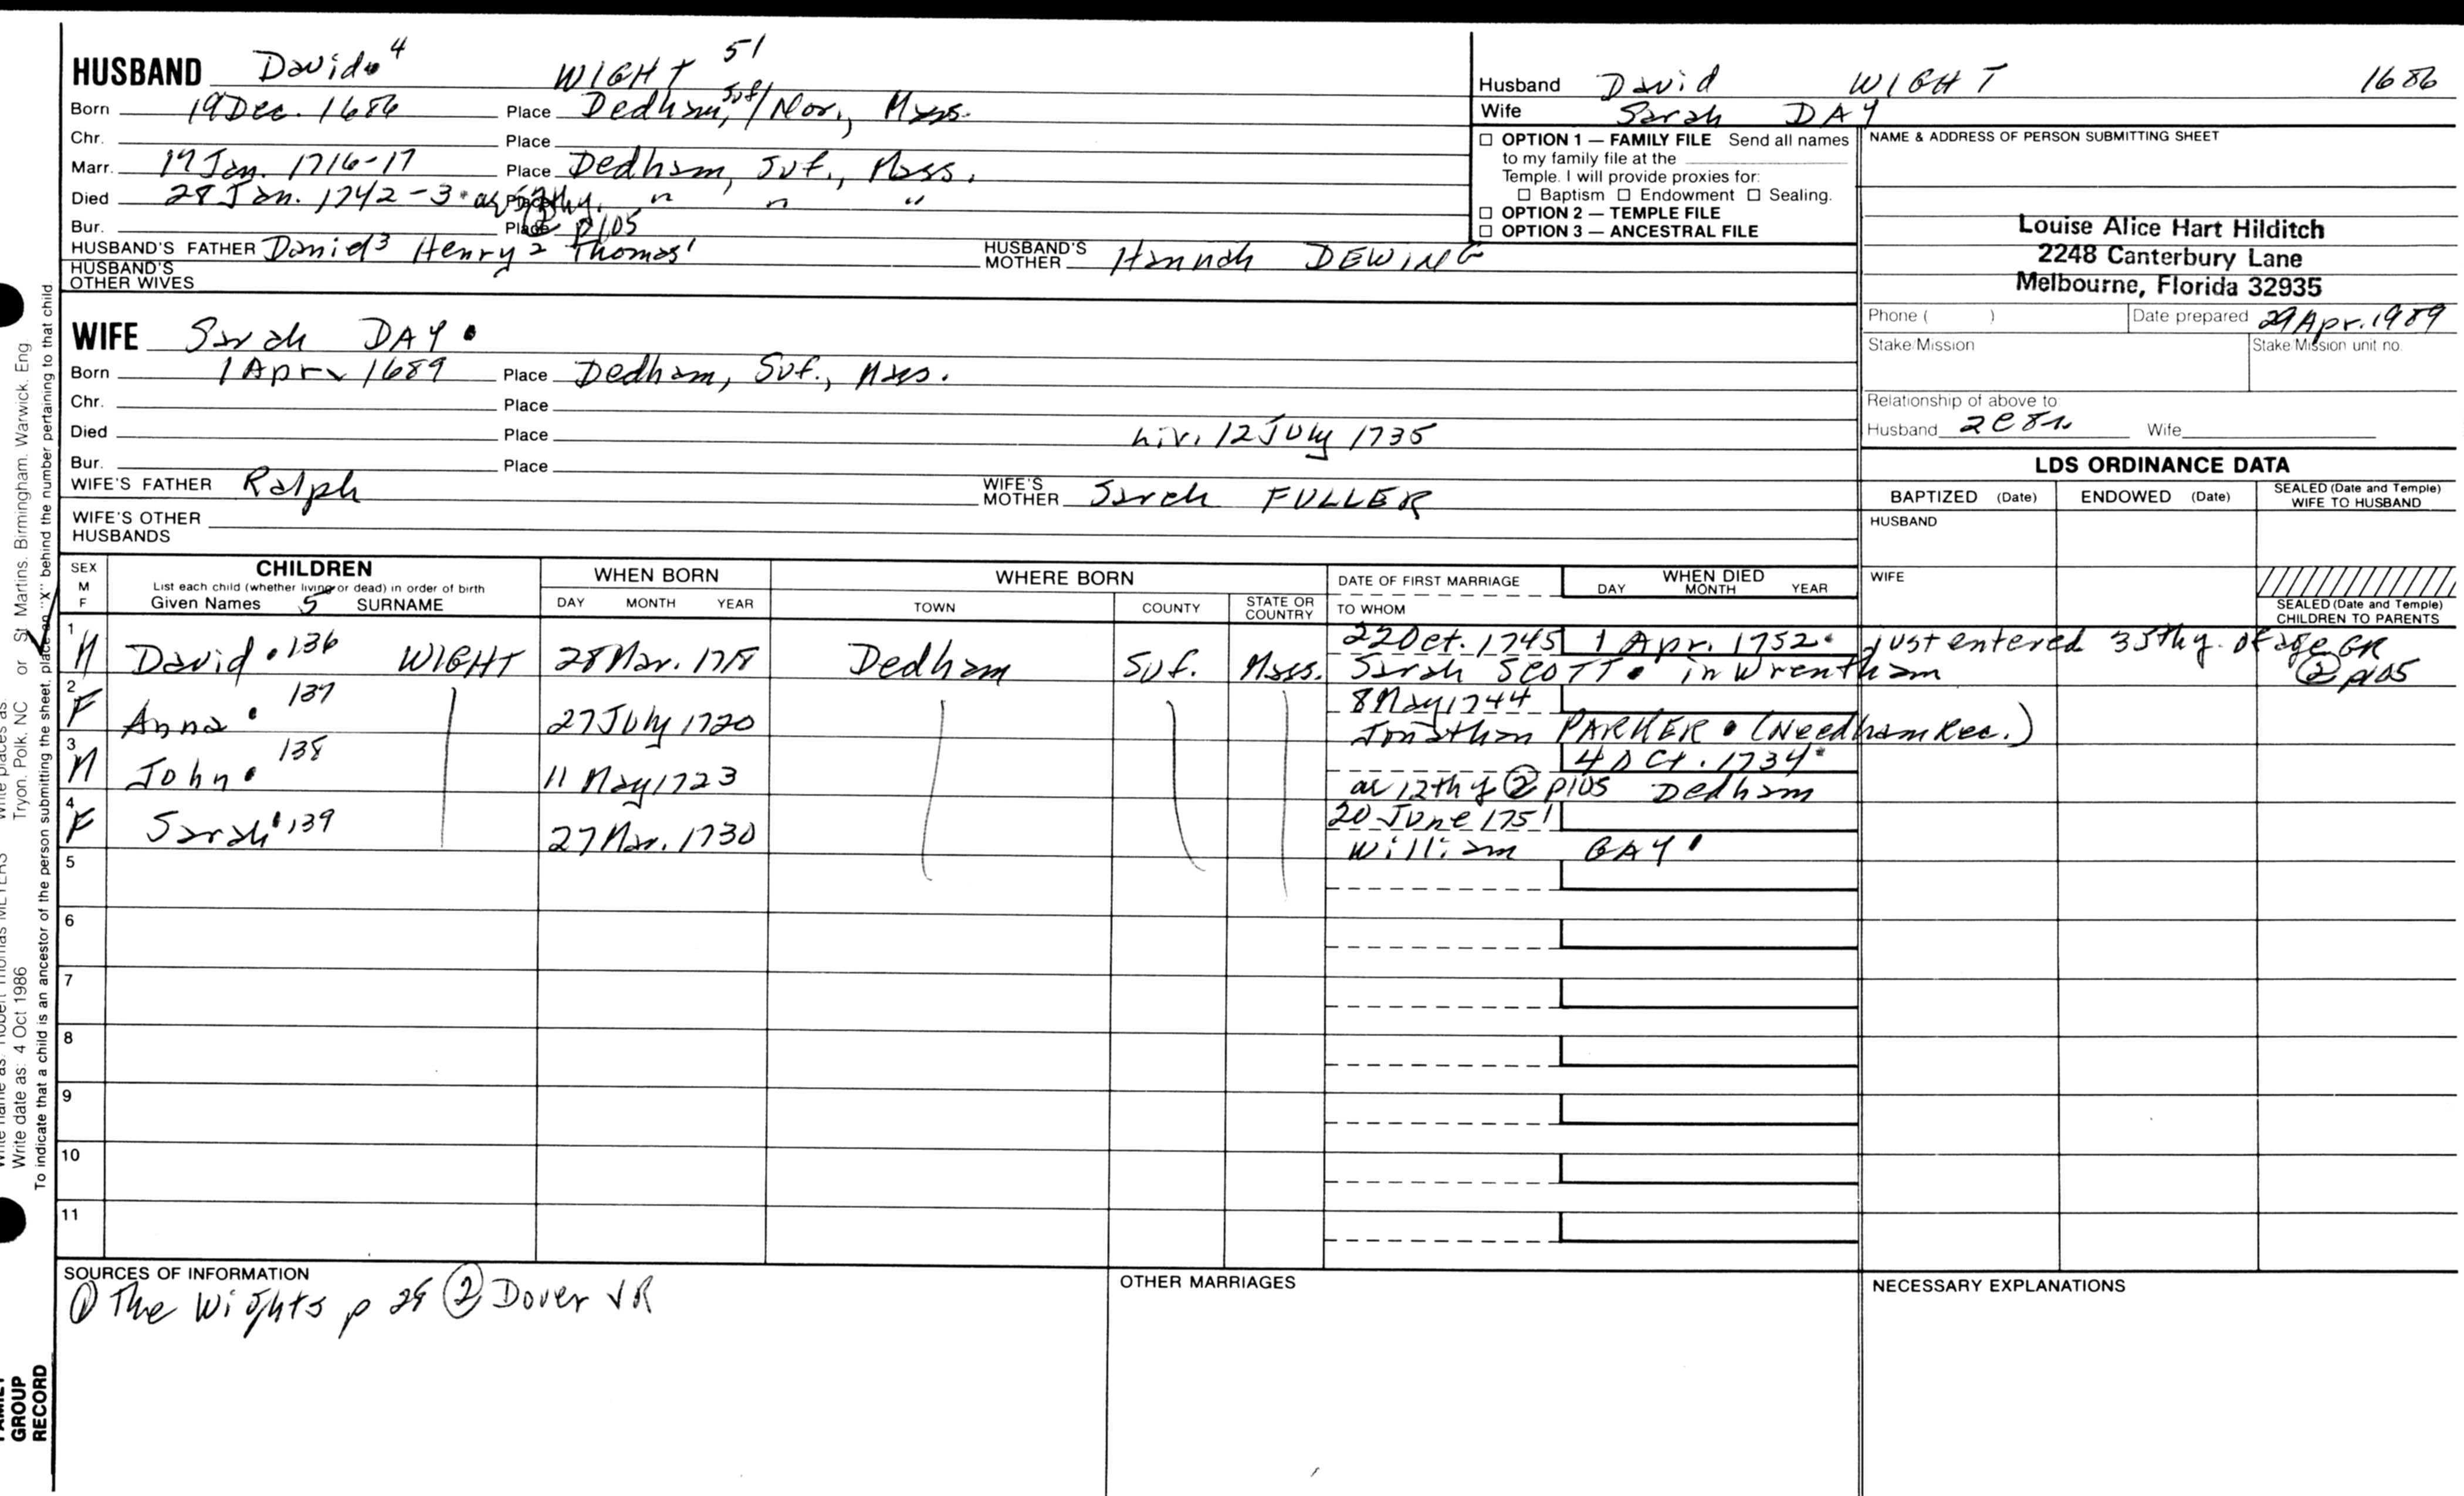 HUSBAND David 4 WIGHT 51
Born 19 Dec. 1686 Place Dedham, Suf/Nor., Mass.
Chr. Place
Marr. 17 Jan. 1716-17 Place Dedham, Suf., Mass.
Died 28 Jan. 1742-3 " " "
Bur. Place ② p105
HUSBAND'S FATHER Daniel3 Henry2 Thomas1 HUSBAND'S MOTHER Hannah DEWING
HUSBAND'S OTHER WIVES
WIFE Sarah DAY
Born 1 Apr 1689 Place Dedham, Suf., Mass.
Chr. Place
Died Place liv. 12 July 1735
Bur. Place
WIFE'S FATHER Ralph WIFE'S MOTHER Sarah FULLER
WIFE'S OTHER HUSBANDS
Husband David WIGHT 1686
Wife Sarah DAY
☐ OPTION 1 — FAMILY FILE Send all names
to my family file at the
Temple. I will provide proxies for:
☐ Baptism ☐ Endowment ☐ Sealing.
☐ OPTION 2 — TEMPLE FILE
☐ OPTION 3 — ANCESTRAL FILE
NAME & ADDRESS OF PERSON SUBMITTING SHEET
Louise Alice Hart Hilditch
2248 Canterbury Lane
Melbourne, Florida 32935
Phone ( ) Date prepared 29 Apr. 1989
Stake/Mission Stake/Mission unit no.
Relationship of above to
Husband Wife
LDS ORDINANCE DATA
BAPTIZED (Date) ENDOWED (Date) SEALED (Date and Temple) WIFE TO HUSBAND
HUSBAND
WIFE
SEALED (Date and Temple) CHILDREN TO PARENTS
SEX M F CHILDREN WHEN BORN WHERE BORN DATE OF FIRST MARRIAGE WHEN DIED
List each child (whether living or dead) in order of birth
Given Names 5 SURNAME DAY MONTH YEAR TOWN COUNTY STATE OR COUNTRY TO WHOM DAY MONTH YEAR
1 M David 136 WIGHT 28 Mar. 1718 Dedham Suf. Mass. 22 Oct. 1745 1 Apr. 1752 just entered 35thy. of age GR
Sarah SCOTT in Wrentham ② p105
2 F Anna 137 27 July 1720 8 May 1744
Jonathan PARKER (Needham Rec.)
3 M John 138 11 May 1723 4 Oct. 1734
ae 12th y ② p105 Dedham
4 F Sarah 139 27 Mar. 1730 20 June 1751
William GAY
5
6
7
8
9
10
11
SOURCES OF INFORMATION
① The Wights p ② Dover VR
OTHER MARRIAGES
NECESSARY EXPLANATIONS
St Martins, Birmingham, Warwick, Eng
or Tryon, Polk, NC or
Write date as: 4 Oct 1986
To indicate that a child is an ancestor of the person submitting the sheet, place an "X" behind the number pertaining to that child
GROUP
RECORD